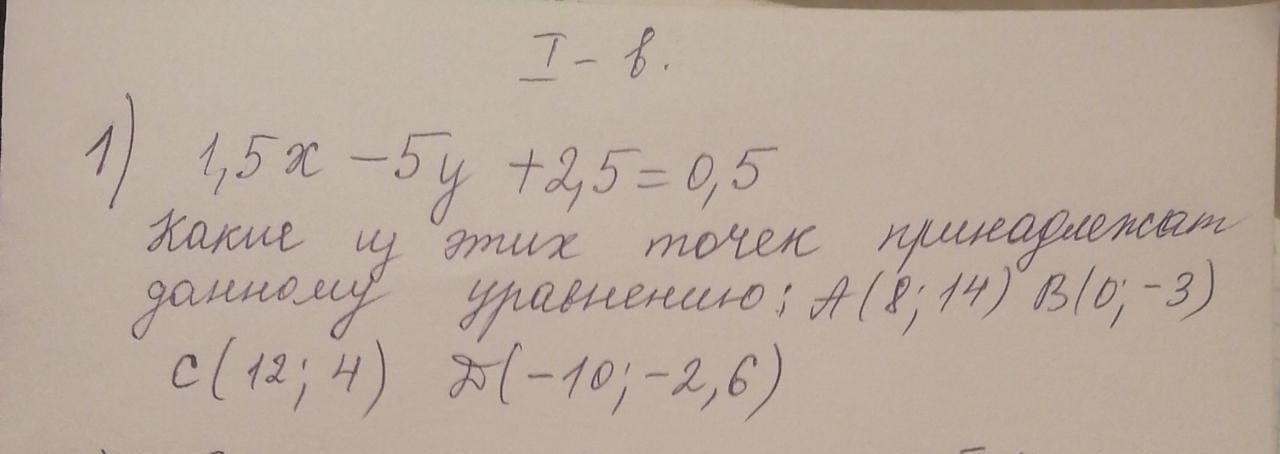 I - в.
1) 1,5x - 5y + 2,5 = 0,5
Какие из этих точек принадлежат
данному уравнению: А(8; 14) В(0; -3)
С(12; 4) Д(-10; -2,6)